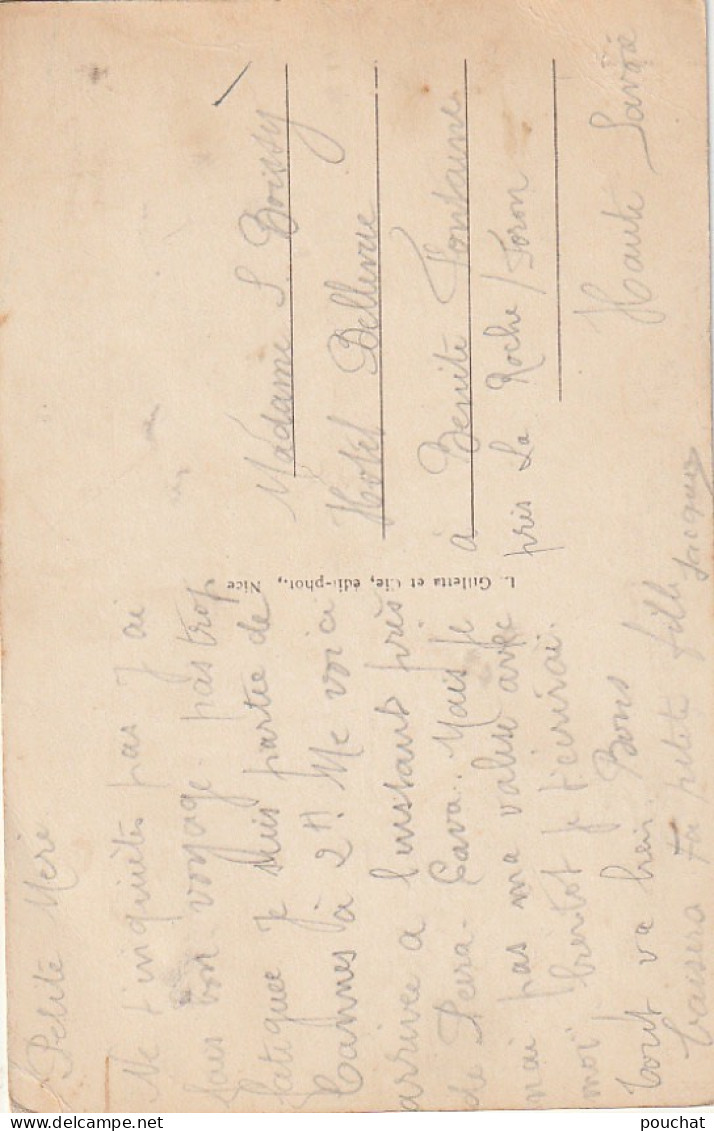 Petite Mère
Ne t'inquiètes pas J'ai
fais bon voyage pas trop
fatiguée Je suis partie de
Cannes à 2h Me voici
arrivée à l'instant près
de Peira-Cava. Mais je
n'ai pas ma valise avec
moi bientot je t'écrirai.
tout va bien. Bons
baisers ta petite fille
Jacques
L. Gilletta et Cie, édit-phot., Nice
Madame S. Boissy
Hotel Bellevue
à Benite Fontaine
près La Roche / Foron
Haute Savoie
pouchat